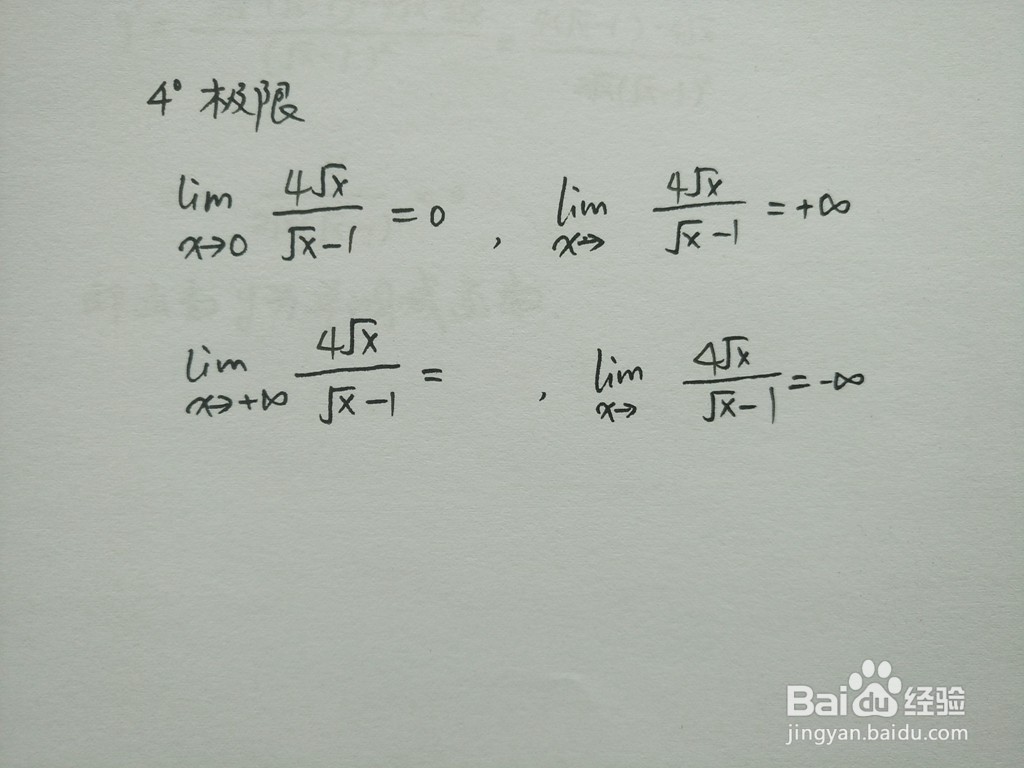 4° 极限
lim x→0 4√x / √x-1 = 0 , lim x→ 4√x / √x-1 = +∞
lim x→+∞ 4√x / √x-1 = , lim x→ 4√x / √x-1 = -∞
Baidu 经验
jingyan.baidu.com